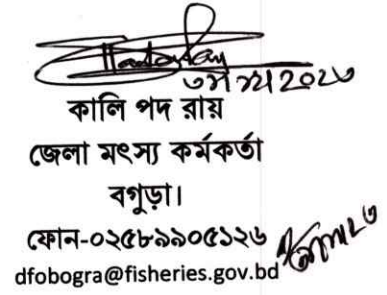 কালি পদ রায়
জেলা মৎস্য কর্মকর্তা
বগুড়া।
ফোন-০২৫৮৯৯০৫১২৬
dfobogra@fisheries.gov.bd